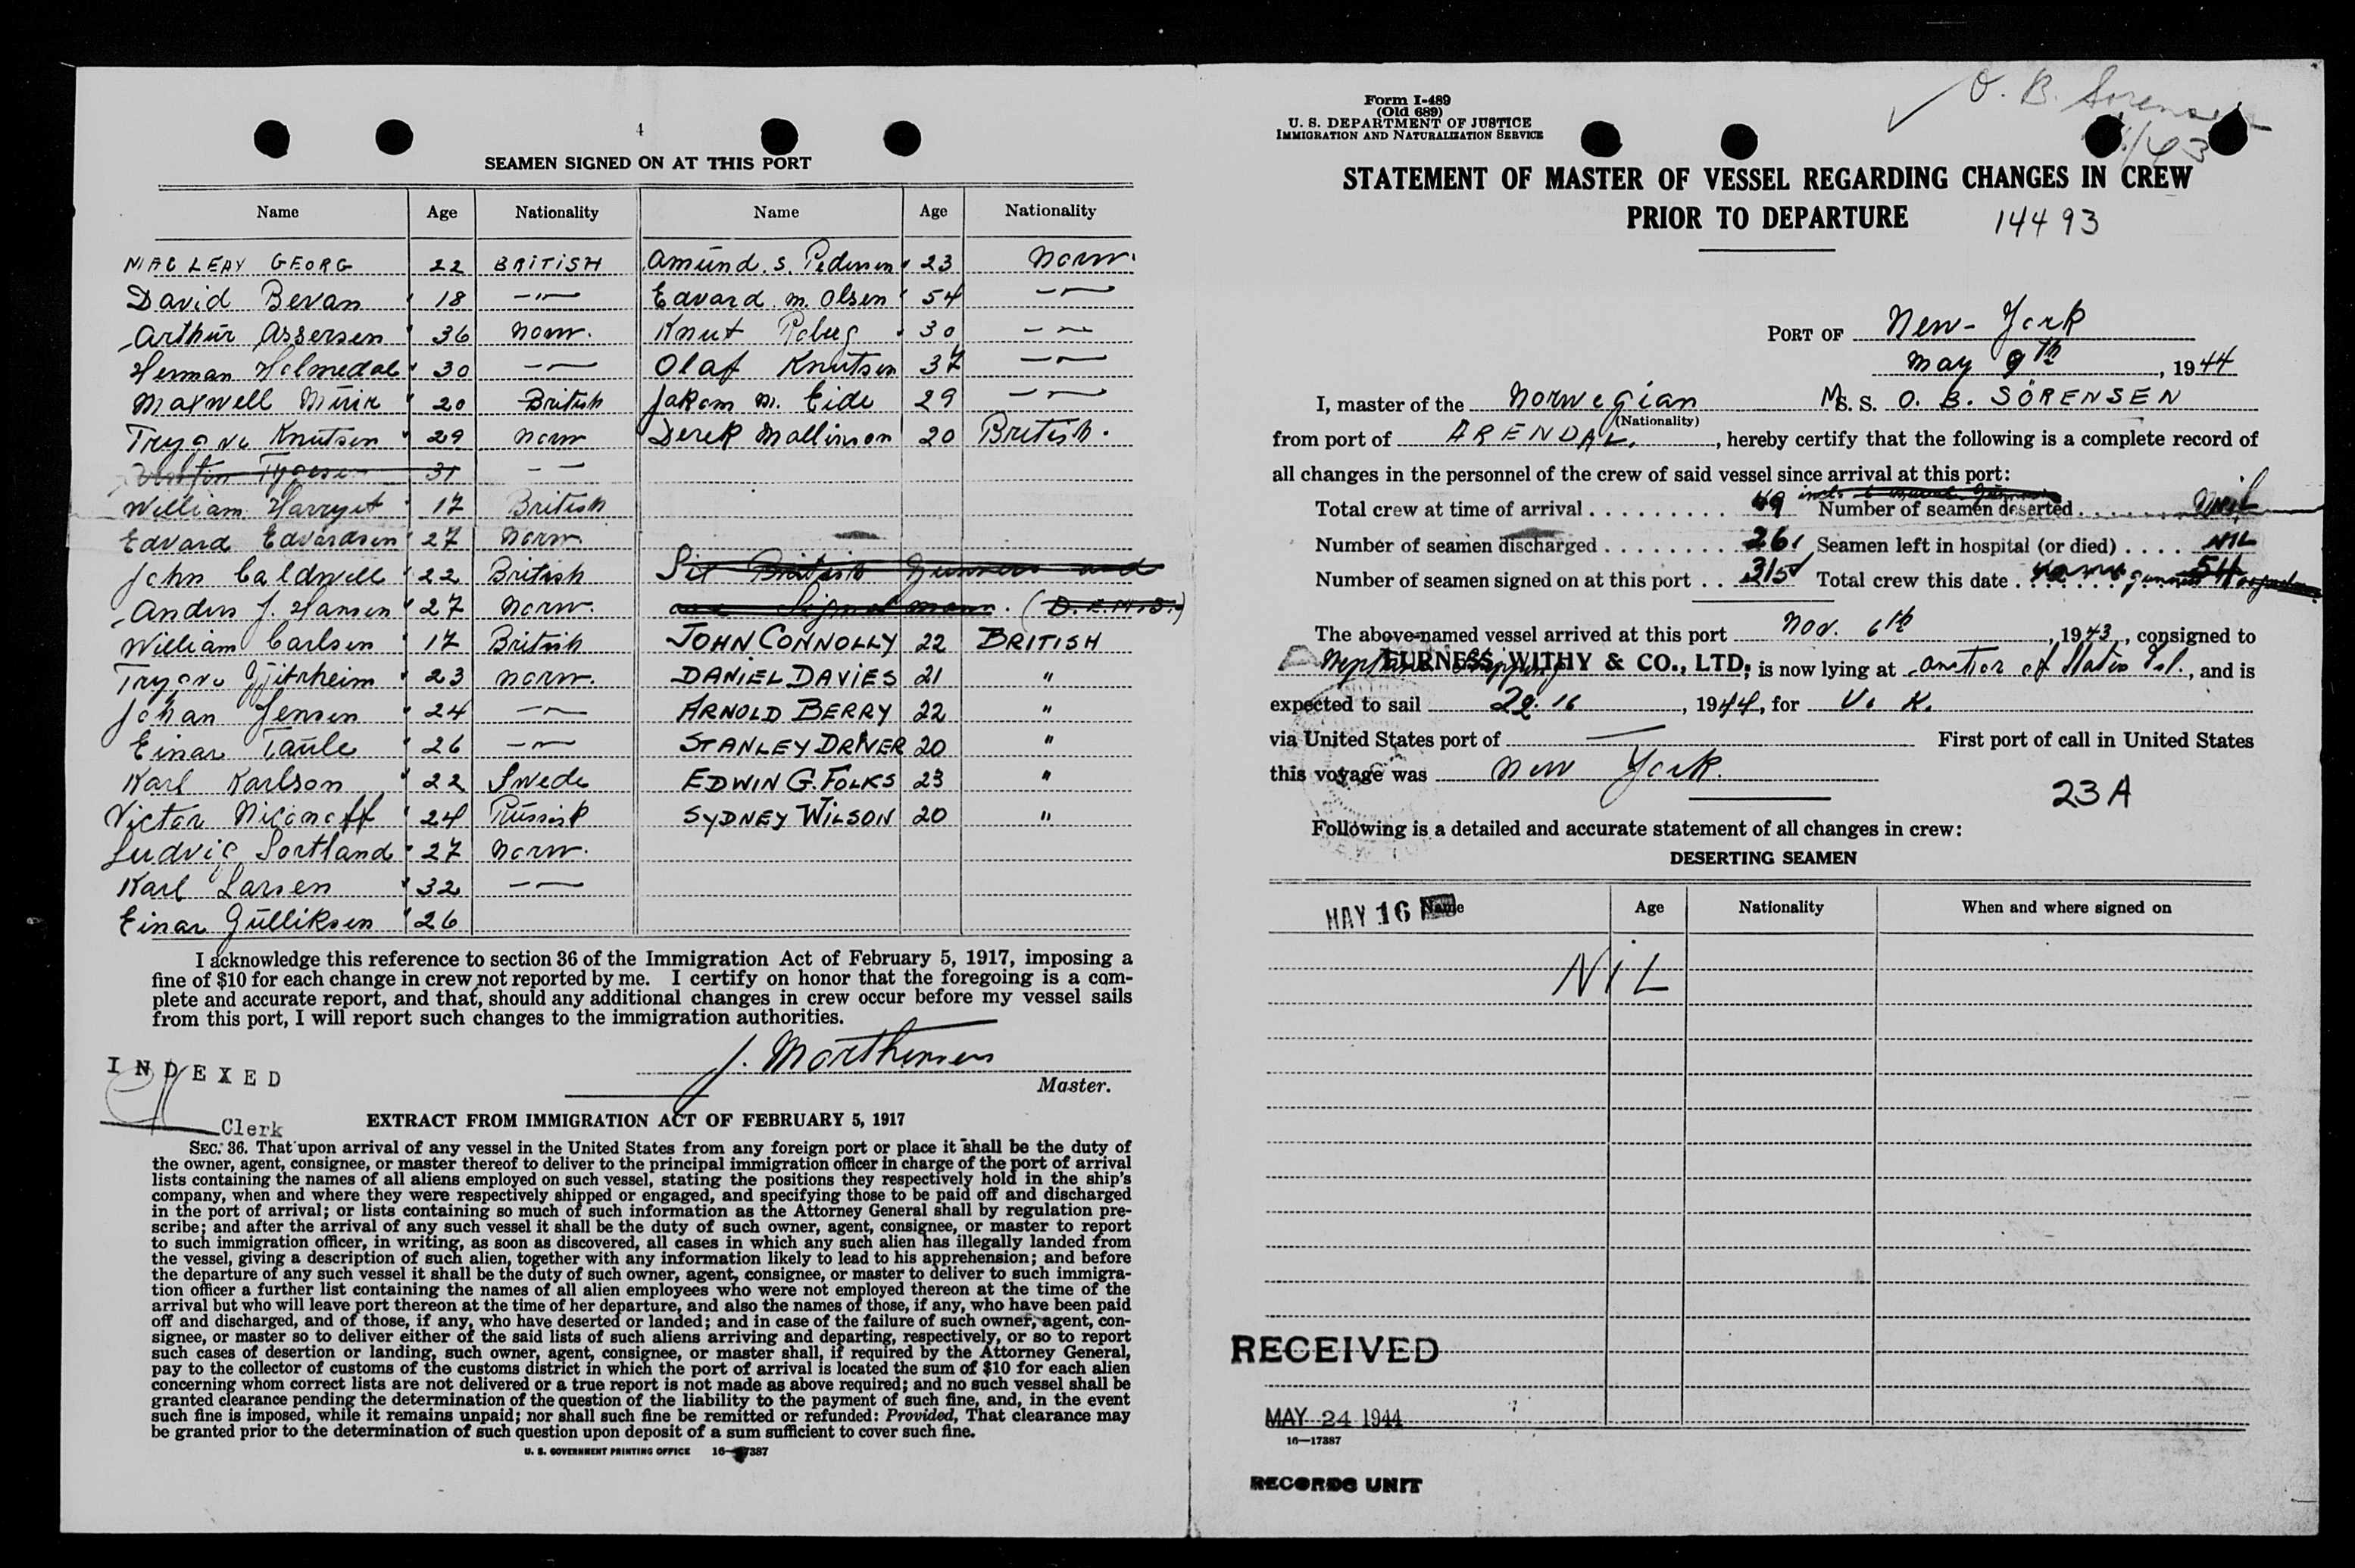 4
SEAMEN SIGNED ON AT THIS PORT
Name Age Nationality Name Age Nationality
MAC LEAY GEORG 22 BRITISH Amünd. S. Pedersen 23 Norw.
David Bevan 18 —"— Edvard M. Olsen 54 —"—
Arthür Assersen 36 Norw. Knut 30 —"—
Herman Holmedal 30 —"— Olaf Knutsen 37 —"—
Maxwell Müir 20 British Jakom M. Eide 29 —"—
Trygve Knutsen 29 Norw Derek Mallinson 20 British.
31 —"—
William 17 British
Edvard Edvardsen 27 Norw.
John Caldwell 22 British Six British Gunners and
Anders J. Hansen 27 Norw. one Signalman. (D.E.M.S.)
William Carlsen 17 British JOHN CONNOLLY 22 BRITISH
Trygve 23 Norw. DANIEL DAVIES 21 "
Johan Jensen 24 —"— ARNOLD BERRY 22 "
Einar Taüle 26 —"— STANLEY DRIVER 20 "
Karl Karlson 22 Swede EDWIN G. FOLKS 23 "
Victor Niconoff 24 SYDNEY WILSON 20 "
Ludvig Sortland 27 Norw.
Karl Larsen 32 —"—
Einar Gülliksen 26
I acknowledge this reference to section 36 of the Immigration Act of February 5, 1917, imposing a
fine of $10 for each change in crew not reported by me. I certify on honor that the foregoing is a com-
plete and accurate report, and that, should any additional changes in crew occur before my vessel sails
from this port, I will report such changes to the immigration authorities.
J. Morthensen
Master.
INDEXED
Clerk
EXTRACT FROM IMMIGRATION ACT OF FEBRUARY 5, 1917
SEC. 36. That upon arrival of any vessel in the United States from any foreign port or place it shall be the duty of
the owner, agent, consignee, or master thereof to deliver to the principal immigration officer in charge of the port of arrival
lists containing the names of all aliens employed on such vessel, stating the positions they respectively hold in the ship's
company, when and where they were respectively shipped or engaged, and specifying those to be paid off and discharged
in the port of arrival; or lists containing so much of such information as the Attorney General shall by regulation pre-
scribe; and after the arrival of any such vessel it shall be the duty of such owner, agent, consignee, or master to report
to such immigration officer, in writing, as soon as discovered, all cases in which any such alien has illegally landed from
the vessel, giving a description of such alien, together with any information likely to lead to his apprehension; and before
the departure of any such vessel it shall be the duty of such owner, agent, consignee, or master to deliver to such immigra-
tion officer a further list containing the names of all alien employees who were not employed thereon at the time of the
arrival but who will leave port thereon at the time of her departure, and also the names of those, if any, who have been paid
off and discharged, and of those, if any, who have deserted or landed; and in case of the failure of such owner, agent, con-
signee, or master so to deliver either of the said lists of such aliens arriving and departing, respectively, or so to report
such cases of desertion or landing, such owner, agent, consignee, or master shall, if required by the Attorney General,
pay to the collector of customs of the customs district in which the port of arrival is located the sum of $10 for each alien
concerning whom correct lists are not delivered or a true report is not made as above required; and no such vessel shall be
granted clearance pending the determination of the question of the liability to the payment of such fine, and, in the event
such fine is imposed, while it remains unpaid; nor shall such fine be remitted or refunded: Provided, That clearance may
be granted prior to the determination of such question upon deposit of a sum sufficient to cover such fine.
U. S. GOVERNMENT PRINTING OFFICE 16—17387
O. B. Sorensen
/43
Form I-489
(Old 689)
U. S. DEPARTMENT OF JUSTICE
IMMIGRATION AND NATURALIZATION SERVICE
STATEMENT OF MASTER OF VESSEL REGARDING CHANGES IN CREW
PRIOR TO DEPARTURE 14493
PORT OF New-York
May 9th, 1944
I, master of the Norwegian M. S. O. B. SÖRENSEN
(Nationality)
from port of ARENDAL, hereby certify that the following is a complete record of
all changes in the personnel of the crew of said vessel since arrival at this port:
Total crew at time of arrival 49 Number of seamen deserted Nil
Number of seamen discharged 26 Seamen left in hospital (or died) NIL
Number of seamen signed on at this port 31 Total crew this date 54
The above-named vessel arrived at this port Nov. 6th, 1943, consigned to
FURNESS, WITHY & CO., LTD; is now lying at, and is
expected to sail 16, 1944, for U. K.
via United States port of — First port of call in United States
this voyage was New York.
23A
Following is a detailed and accurate statement of all changes in crew:
DESERTING SEAMEN
MAY 16
Name Age Nationality When and where signed on
NIL
RECEIVED
MAY 24 1944
16—17387
RECORDS UNIT